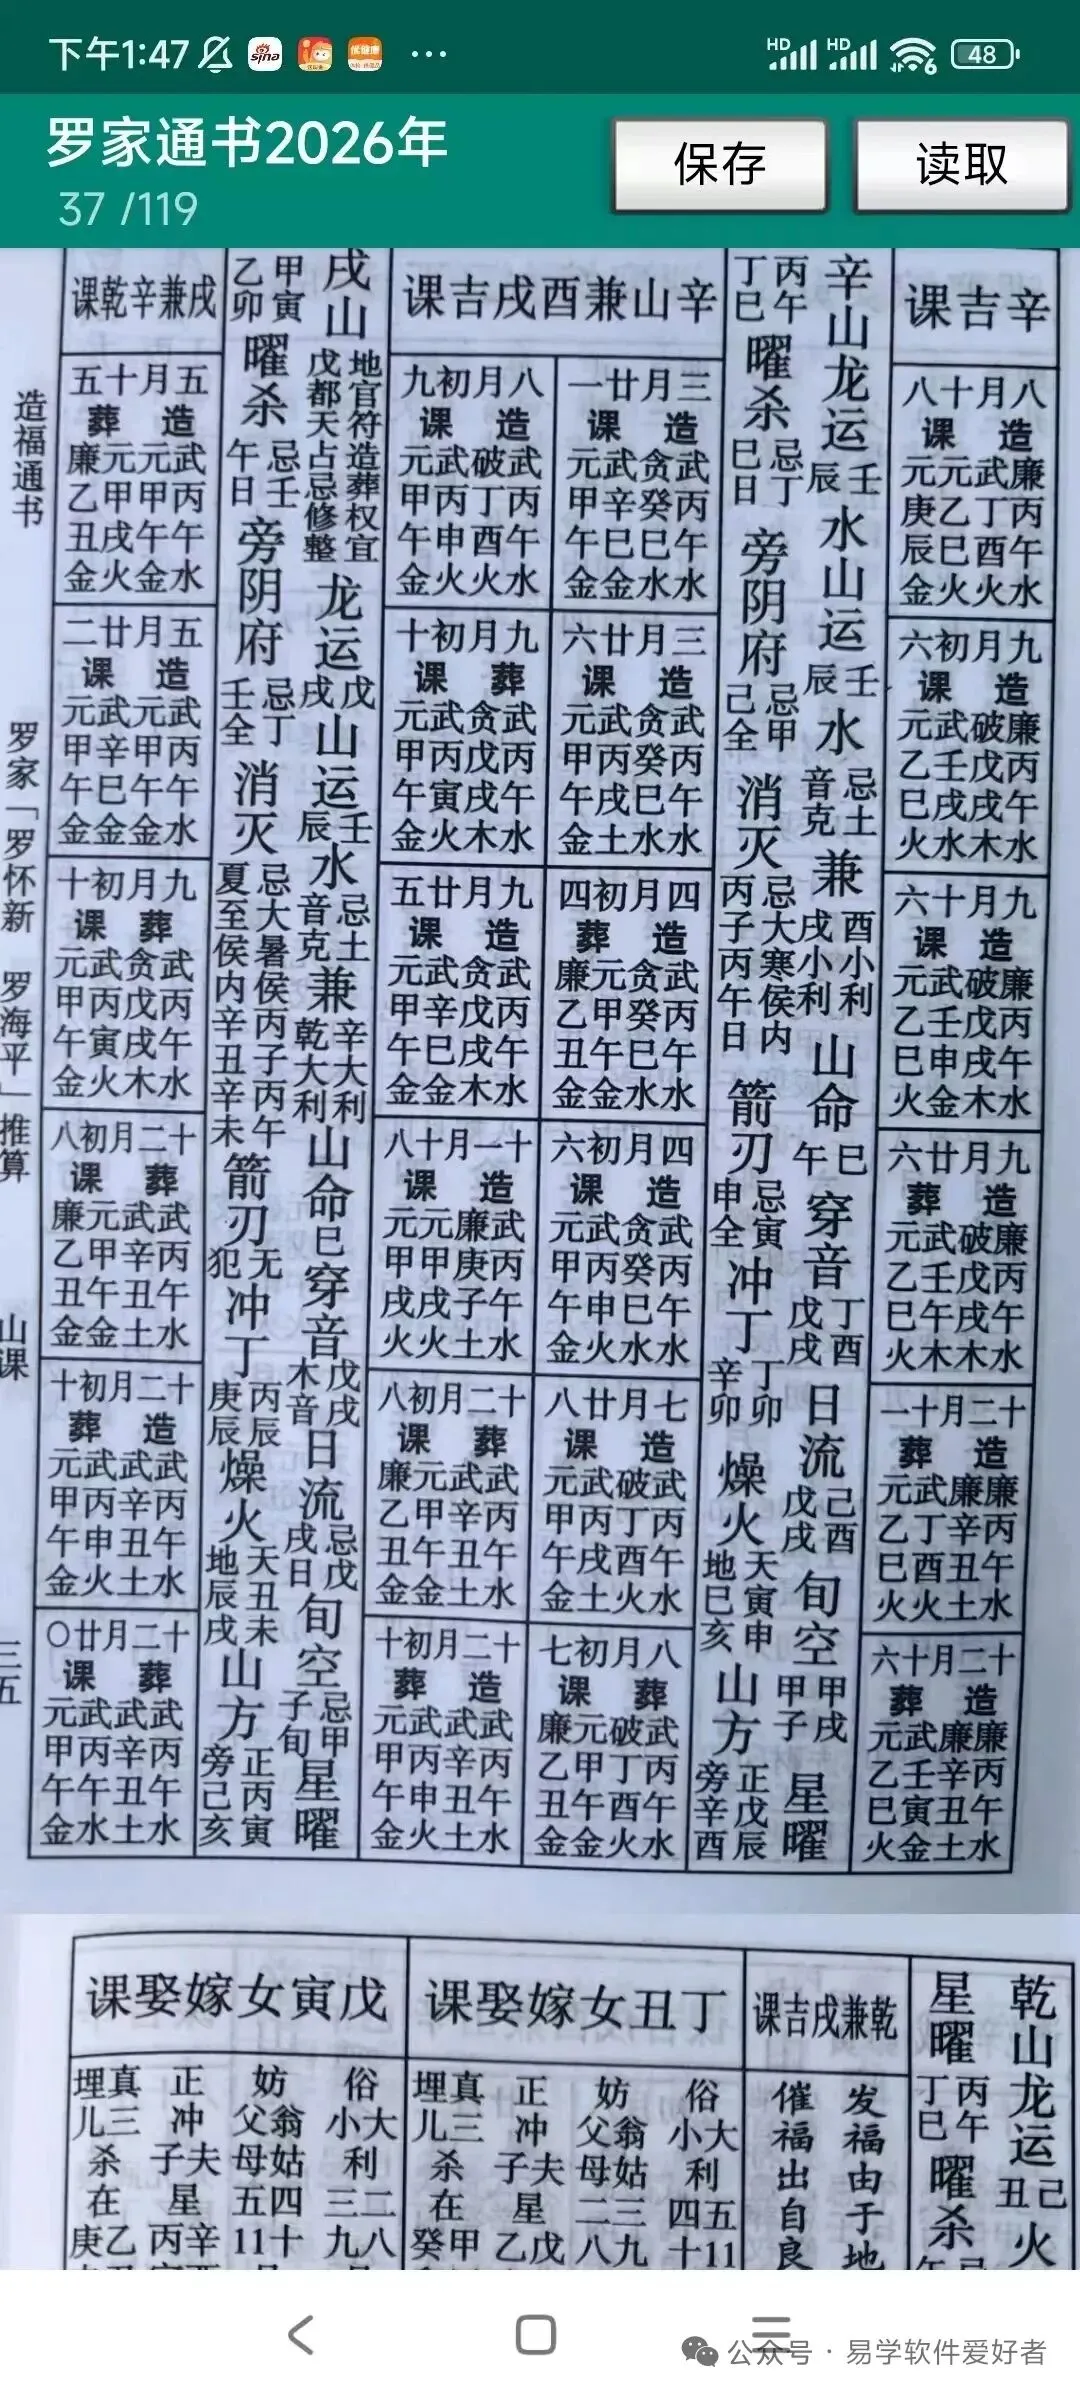 下午1:47
sina
HD
HD
6
48
罗家通书2026年
37 /119
保存
读取
辛吉课
八月十八
造课
廉丙午水
武丁酉火
元乙巳火
元庚辰金
九月初六
造课
廉丙午水
破戊戌木
武壬戌水
元乙巳火
九月十六
造课
廉丙午水
破戊戌木
武壬申金
元乙巳火
九月廿六
造葬
廉丙午水
破戊戌木
武壬午木
元乙巳火
十二月十一
造葬
廉丙午水
廉辛丑土
武丁酉火
元乙巳火
十二月十六
造葬
廉丙午水
廉辛丑土
武壬寅金
元乙巳火
辛山龙运壬辰水山运壬辰水忌土音克兼酉小利戌小利山命巳午穿音丁酉戊戌日流己酉戊戌旬空甲戌甲子星曜
丙午丁巳曜杀忌丁巳日旁阴府忌甲己全消灭忌大寒侯内丙子丙午日箭刃忌寅申全冲丁丁卯辛卯燥火天寅申地巳亥山方正戊辰旁辛酉
辛山兼酉戌吉课
三月廿一
造课
武丙午水
贪癸巳水
武辛巳金
元甲午金
三月廿六
造课
武丙午水
贪癸巳水
武丙戌土
元甲午金
四月初四
造葬
武丙午水
贪癸巳水
元甲午金
廉乙丑金
四月初六
造课
武丙午水
贪癸巳水
武丙申火
元甲午金
七月廿八
造课
武丙午水
破丁酉火
武丙戌土
元甲午金
八月初七
葬课
武丙午水
破丁酉火
元甲午金
廉乙丑金
八月初九
造课
武丙午水
破丁酉火
武丙申火
元甲午金
九月初十
葬课
武丙午水
贪戊戌木
武丙寅火
元甲午金
九月廿五
造课
武丙午水
贪戊戌木
武辛巳金
元甲午金
十一月十八
造课
武丙午水
廉庚子土
元甲戌火
元甲戌火
十二月初八
葬课
武丙午水
武辛丑土
元甲午金
廉乙丑金
十二月初十
造葬
武丙午水
武辛丑土
武丙申火
元甲午金
戌山地官符造葬权宜戊都天占忌修整龙运戊戌山运壬辰水忌土音克兼辛大利乾大利山命巳穿音戊戌木音日流忌戊戌日旬空忌甲子旬星曜
甲寅乙卯曜杀忌壬午日旁阴府忌丁壬全消灭忌大暑侯丙子丙午夏至侯内辛丑辛未箭刃无犯冲丁丙辰庚辰燥火天丑未地辰戌山方正丙寅旁己亥
戌兼辛乾课
五月十五
造葬
武丙午水
元甲午金
元甲戌火
廉乙丑金
五月廿二
造课
武丙午水
元甲午金
武辛巳金
元甲午金
九月初十
葬课
武丙午水
贪戊戌木
武丙寅火
元甲午金
十二月初八
葬课
武丙午水
武辛丑土
元甲午金
廉乙丑金
十二月初十
造葬
武丙午水
武辛丑土
武丙申火
元甲午金
十二月廿〇
葬课
武丙午水
武辛丑土
武丙午水
元甲午金
造福通书
罗家「罗怀新 罗海平」推算
山课
三五
乾山龙运己丑火
星曜丙午丁巳曜杀
乾兼戌吉课
发福由于地
催福出自良
丁丑女嫁娶课
俗大利五11
小四十
妨翁姑三九
父母二八
正冲夫星戊
子乙
真三杀在甲
埋儿癸
戊寅女嫁娶课
俗大利二八
小三九
妨翁姑四十
父母五11
正冲夫星辛
子丙
真三杀在乙
埋儿庚
公众号 · 易学软件爱好者